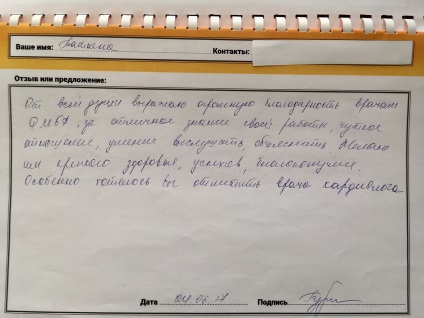 Ваше имя: Татьяна Контакты:
Отзыв или предложение:
От всей души выражаю огромную благодарность врачам
ФМБА, за отличное знание своей работы, чуткое
отношение, умение выслушать, объяснить. Желаю
им крепкого здоровья, успехов, благополучия.
Особенно хотелось бы отметить врача кардиолога
Дата 04.06.17 Подпись